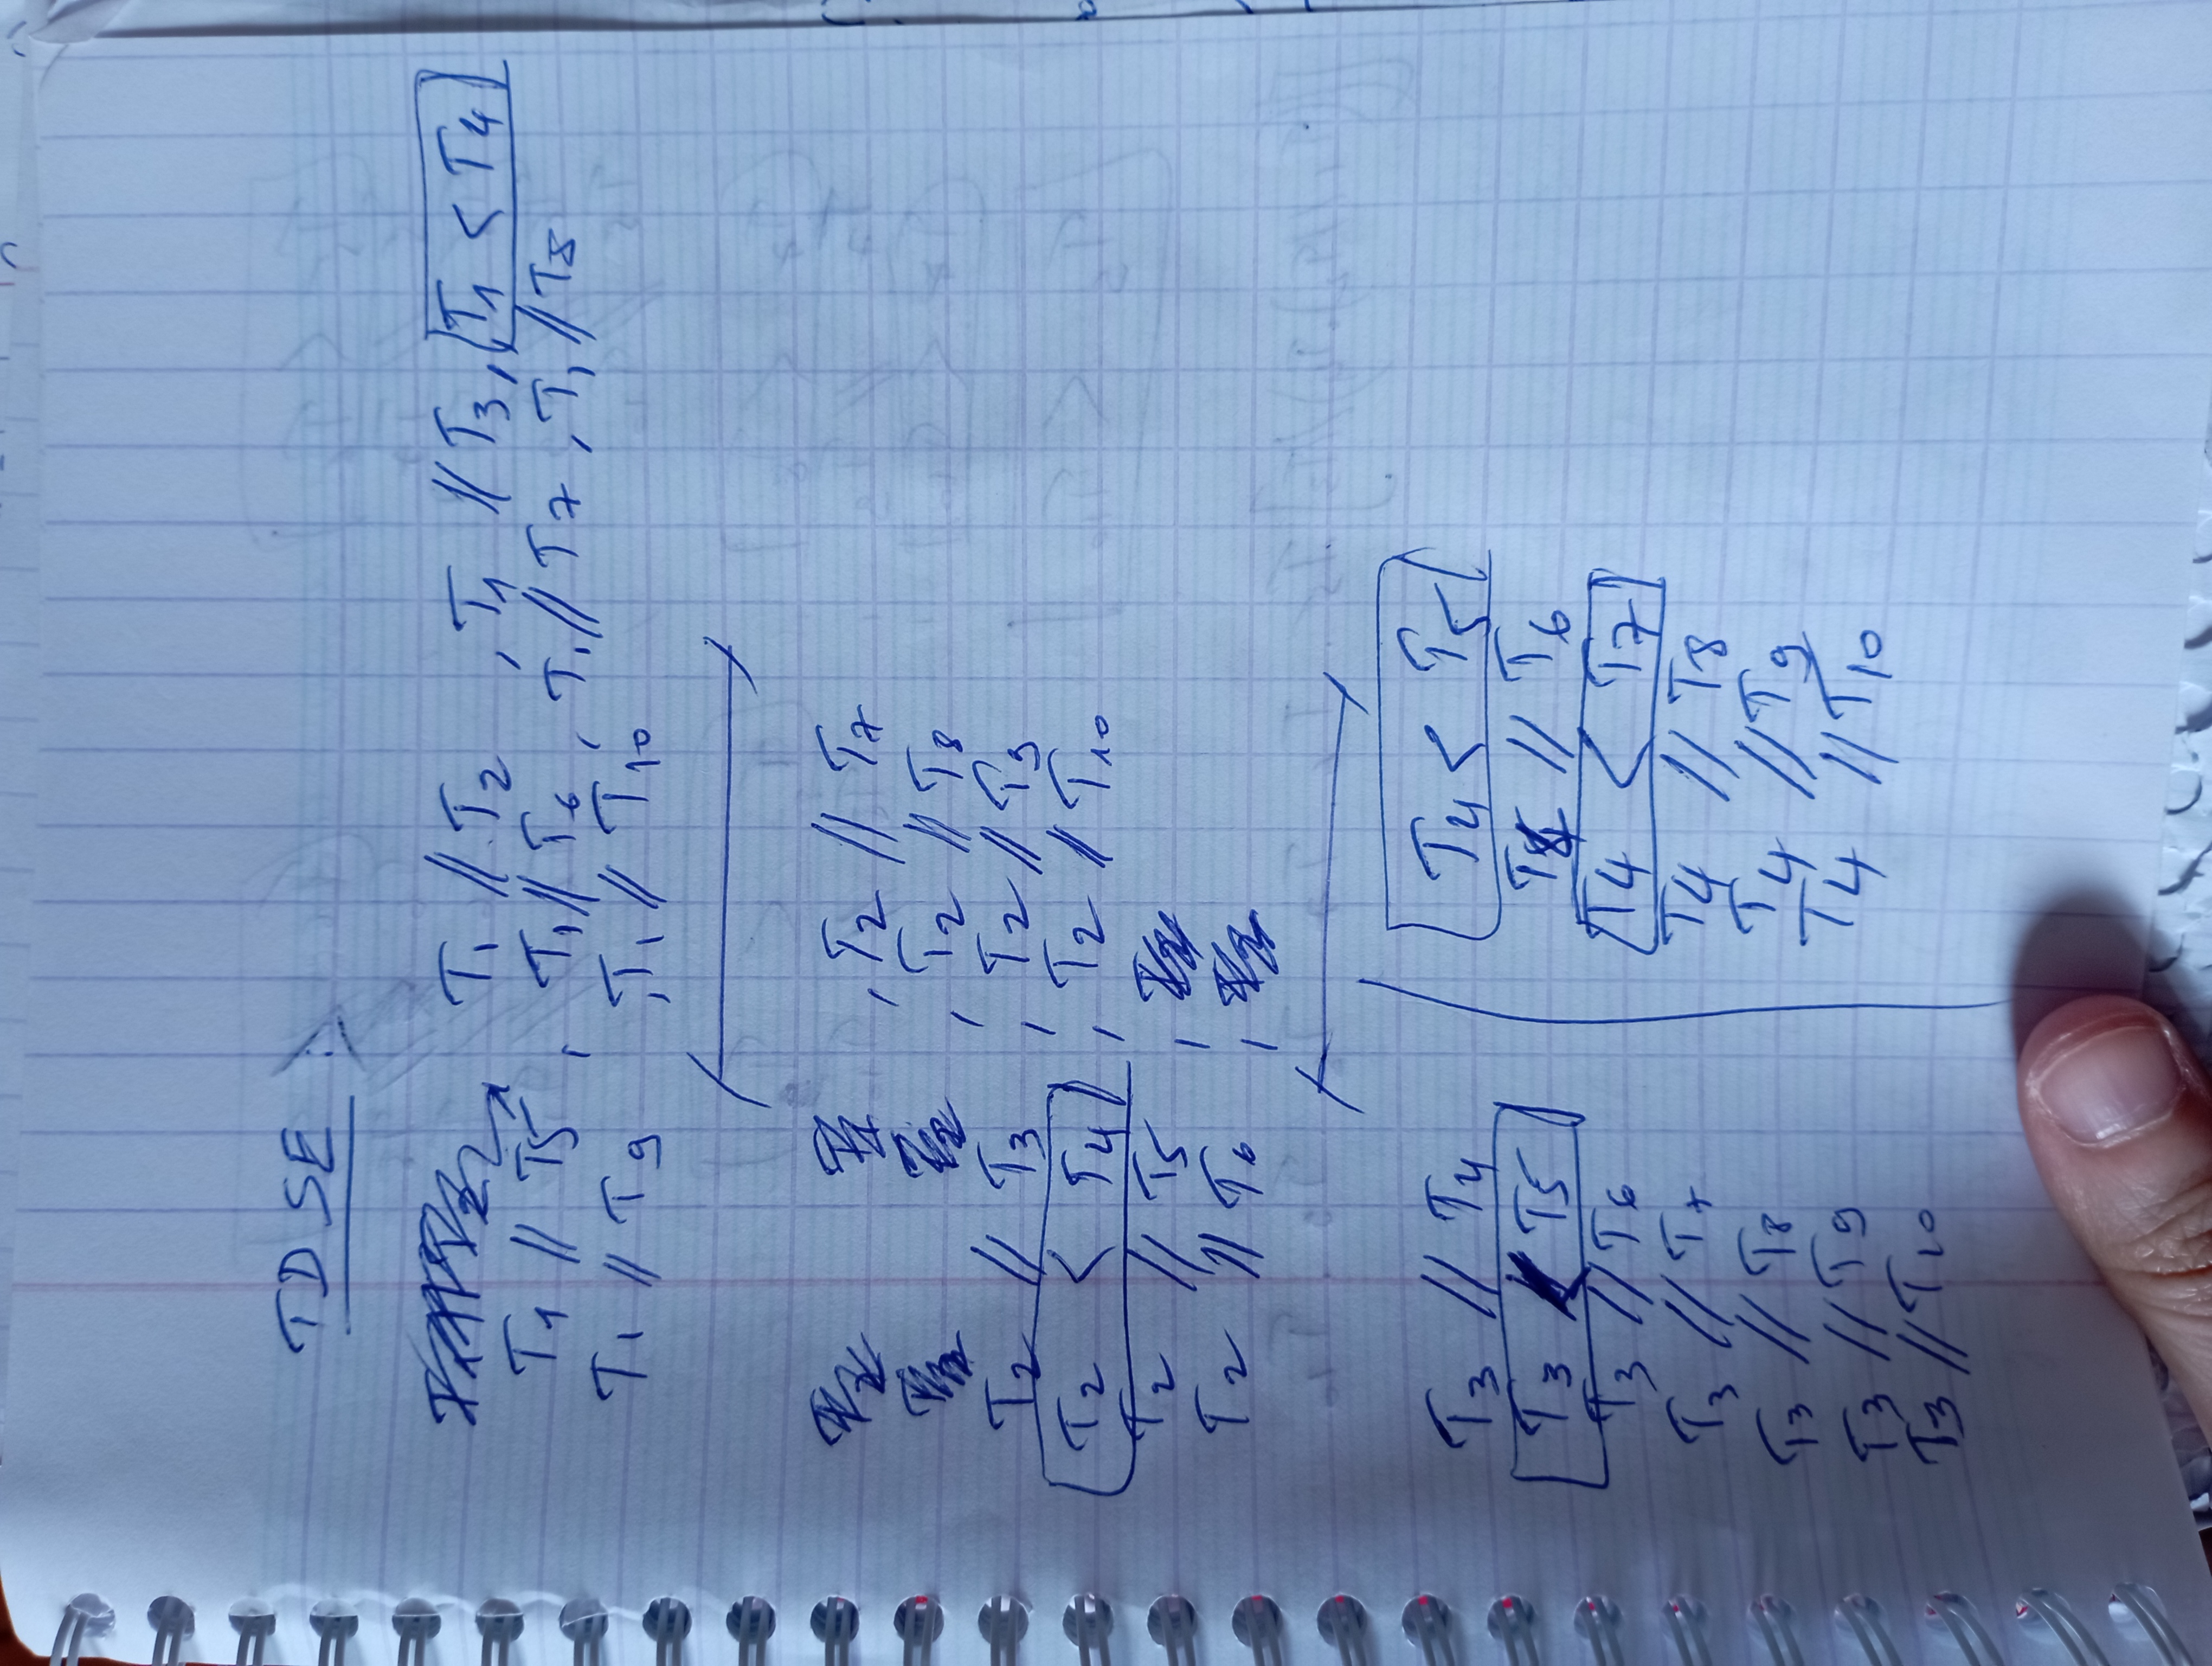 TD SE :
T1 // T2 , T1 // T3, T1 < T4
T1 // T5 , T1 // T6 , T1 // T7 , T1 // T8
T1 // T9 , T1 // T10
, T2 // T7
, T2 // T8
T2 // T3 , T2 // T9
T2 < T4 , T2 // T10
T2 // T5 ,
T2 // T6 ,
T3 // T4
T3 < T5
T3 // T6
T3 // T7
T3 // T8
T3 // T9
T3 // T10
T4 < T5
T4 // T6
T4 < T7
T4 // T8
T4 // T9
T4 // T10